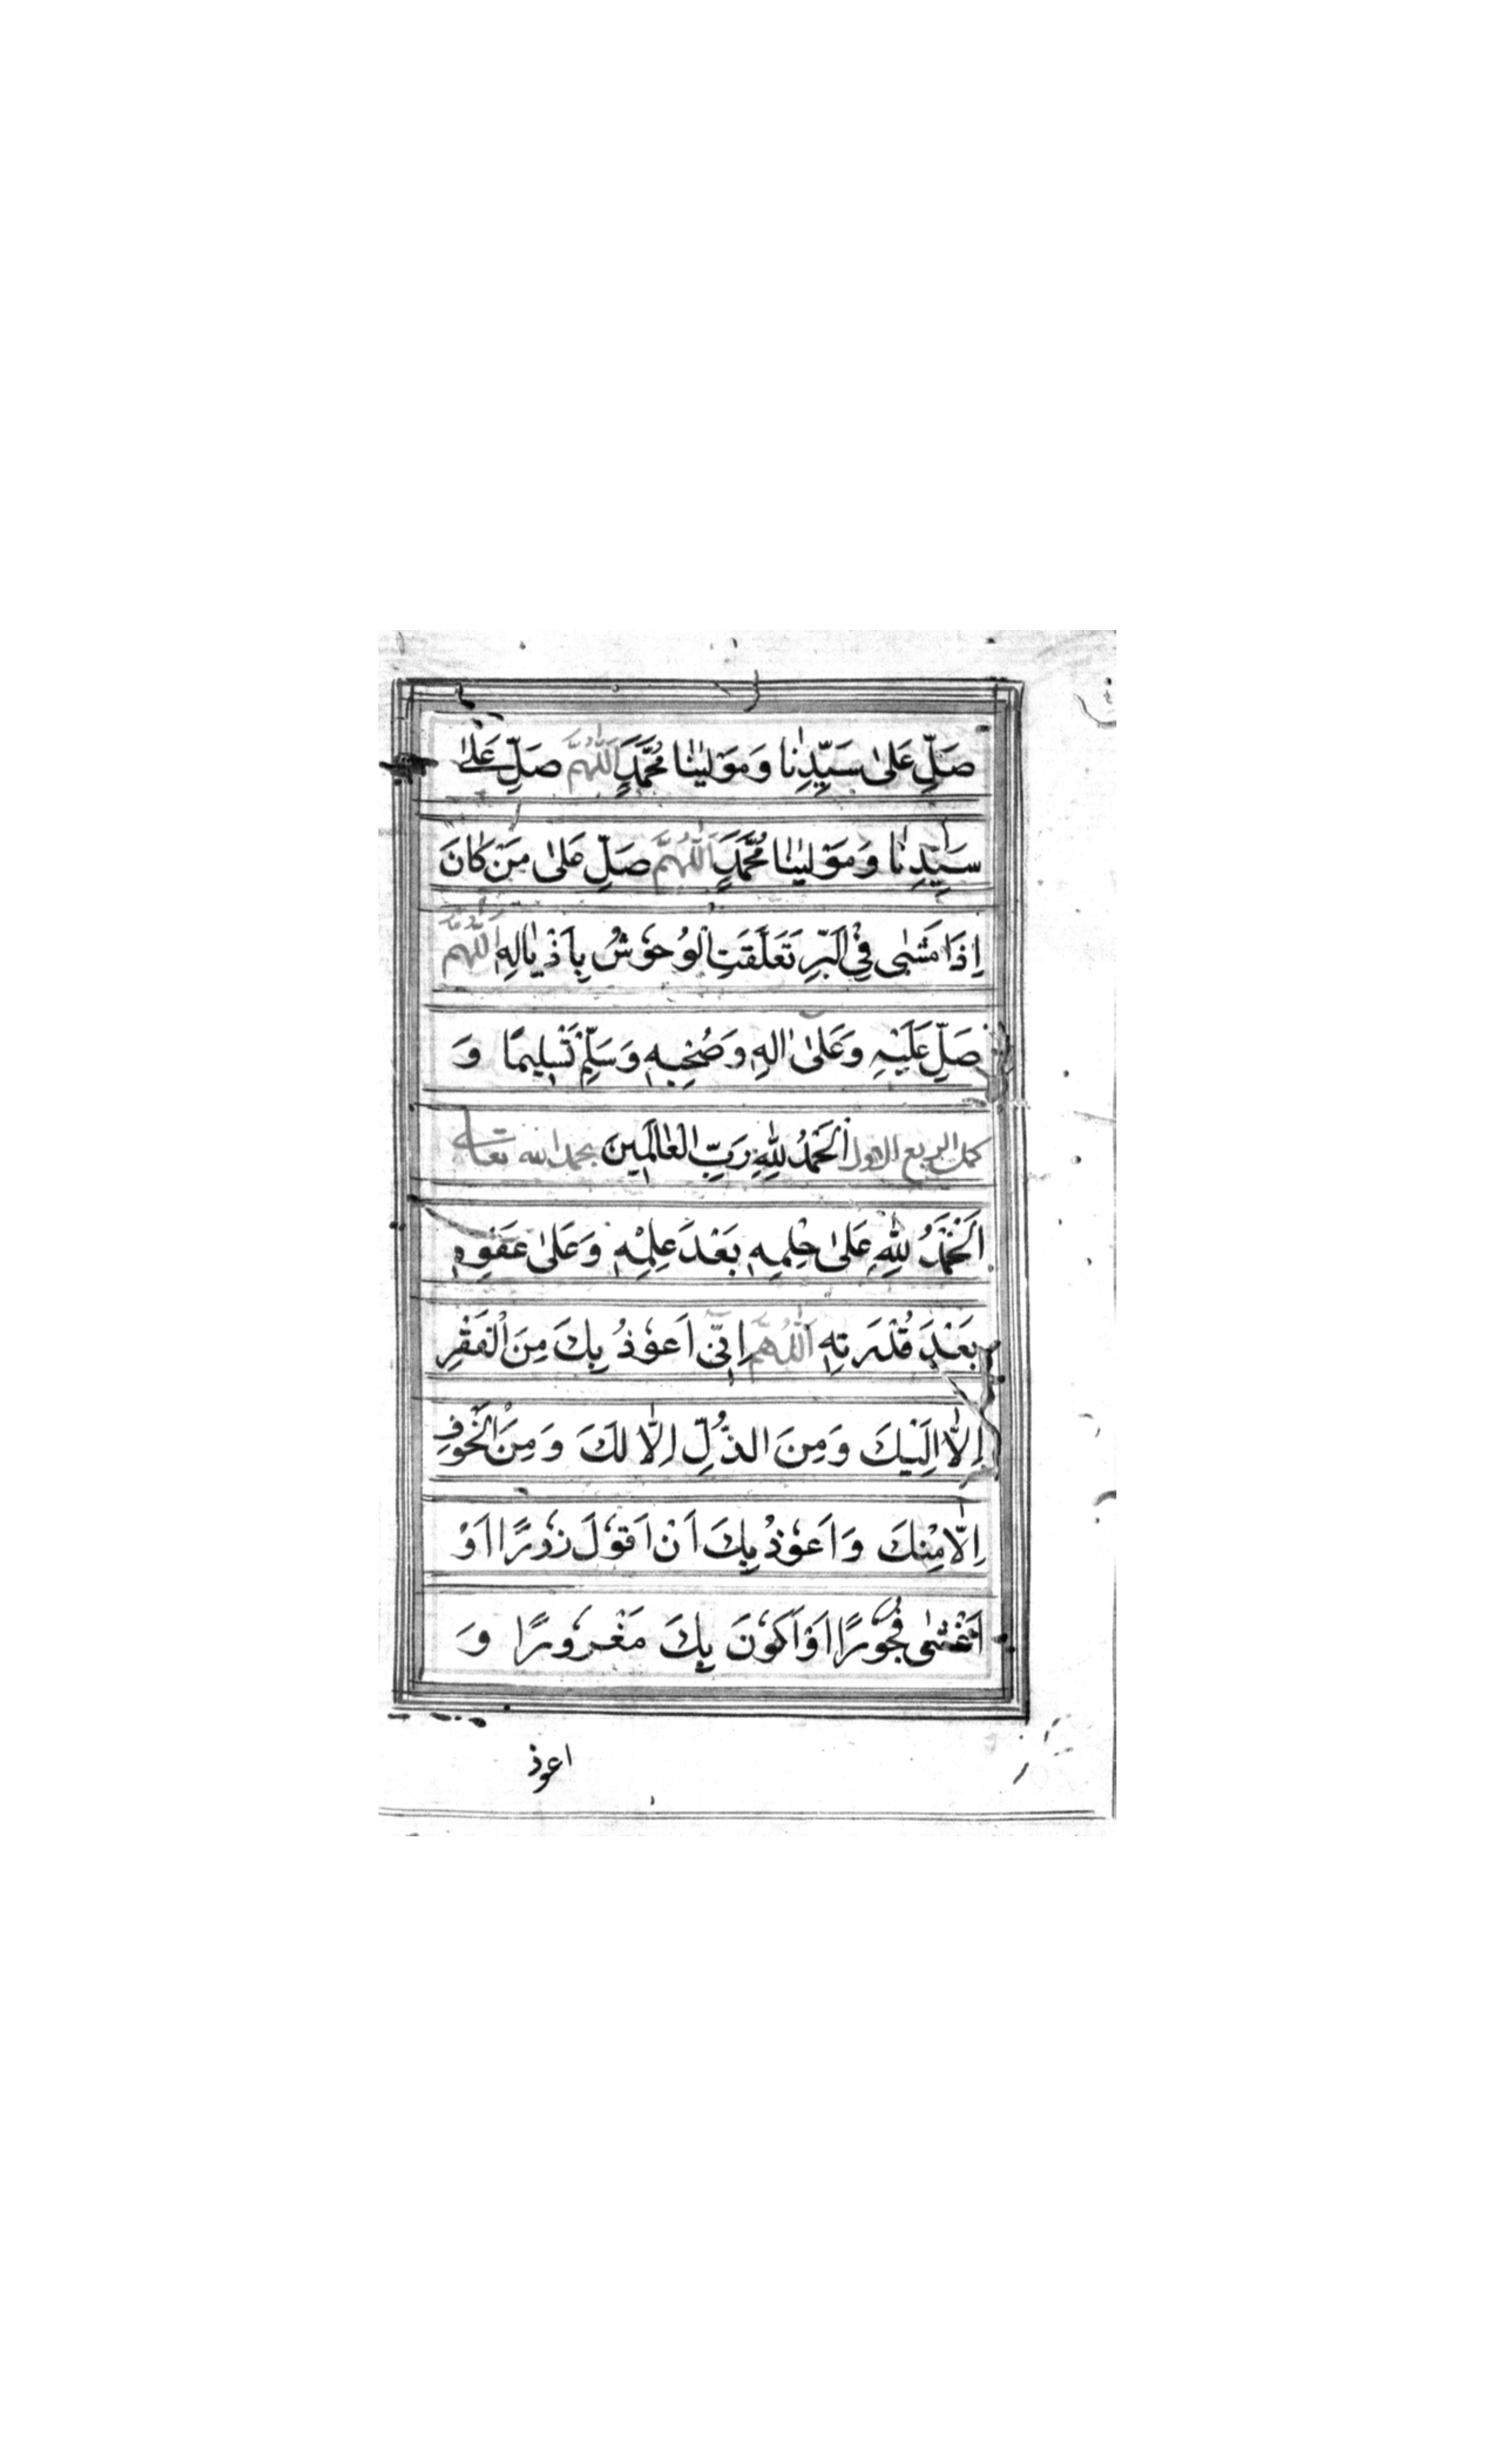 صَلِّ عَلٰى سَيِّدِنَا وَمَوْلٰينَا مُحَمَّدٍ اَللّٰهُمَّ صَلِّ عَلٰى
سَيِّدِنَا وَمَوْلٰينَا مُحَمَّدٍ اَللّٰهُمَّ صَلِّ عَلٰى مَنْ كَانَ
اِذَا مَشٰى فِي الْبَرِّ تَعَلَّقَتِ الْوُحُوْشُ بِاَذْيَالِهٖ اَللّٰهُمَّ
صَلِّ عَلَيْهِ وَعَلٰى اٰلِهٖ وَصَحْبِهٖ وَسَلِّمْ تَسْلِيمًا وَ
كمل الربع الاول اَلْحَمْدُ لِلّٰهِ رَبِّ الْعَالَمِينَ بحمد الله تعالى
اَلْحَمْدُ لِلّٰهِ عَلٰى حِلْمِهٖ بَعْدَ عِلْمِهٖ وَعَلٰى عَفْوِهٖ
بَعْدَ قُدْرَتِهٖ اَللّٰهُمَّ اِنِّيْ اَعُوْذُ بِكَ مِنَ الْفَقْرِ
اِلَّا اِلَيْكَ وَمِنَ الذُّلِّ اِلَّا لَكَ وَمِنَ الْخَوْفِ
اِلَّا مِنْكَ وَاَعُوْذُ بِكَ اَنْ اَقُوْلَ زُوْرًا اَوْ
اَغْشٰى فُجُوْرًا اَوْ اَكُوْنَ بِكَ مَغْرُوْرًا وَ
اعوذ